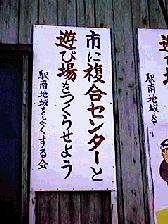 市に複合センターと
遊び場をつくらせよう
駅南地域をよくする会
駅南地域を